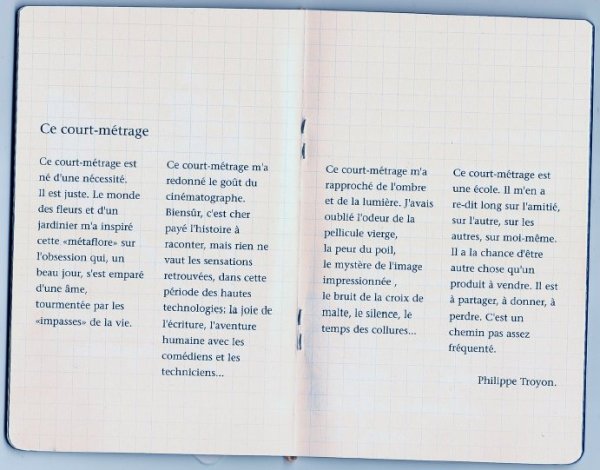 Ce court-métrage
Ce court-métrage est
né d'une nécessité.
Il est juste. Le monde
des fleurs et d'un
jardinier m'a inspiré
cette «métaflore» sur
l'obsession qui, un
beau jour, s'est emparé
d'une âme,
tourmentée par les
«impasses» de la vie.
Ce court-métrage m'a
redonné le goût du
cinématographe.
Biensûr, c'est cher
payé l'histoire à
raconter, mais rien ne
vaut les sensations
retrouvées, dans cette
période des hautes
technologies: la joie de
l'écriture, l'aventure
humaine avec les
comédiens et les
techniciens...
Ce court-métrage m'a
rapproché de l'ombre
et de la lumière. J'avais
oublié l'odeur de la
pellicule vierge,
la peur du poil,
le mystère de l'image
impressionnée ,
le bruit de la croix de
malte, le silence, le
temps des collures...
Ce court-métrage est
une école. Il m'en a
re-dit long sur l'amitié,
sur l'autre, sur les
autres, sur moi-même.
Il a la chance d'être
autre chose qu'un
produit à vendre. Il est
à partager, à donner, à
perdre. C'est un
chemin pas assez
fréquenté.
Philippe Troyon.